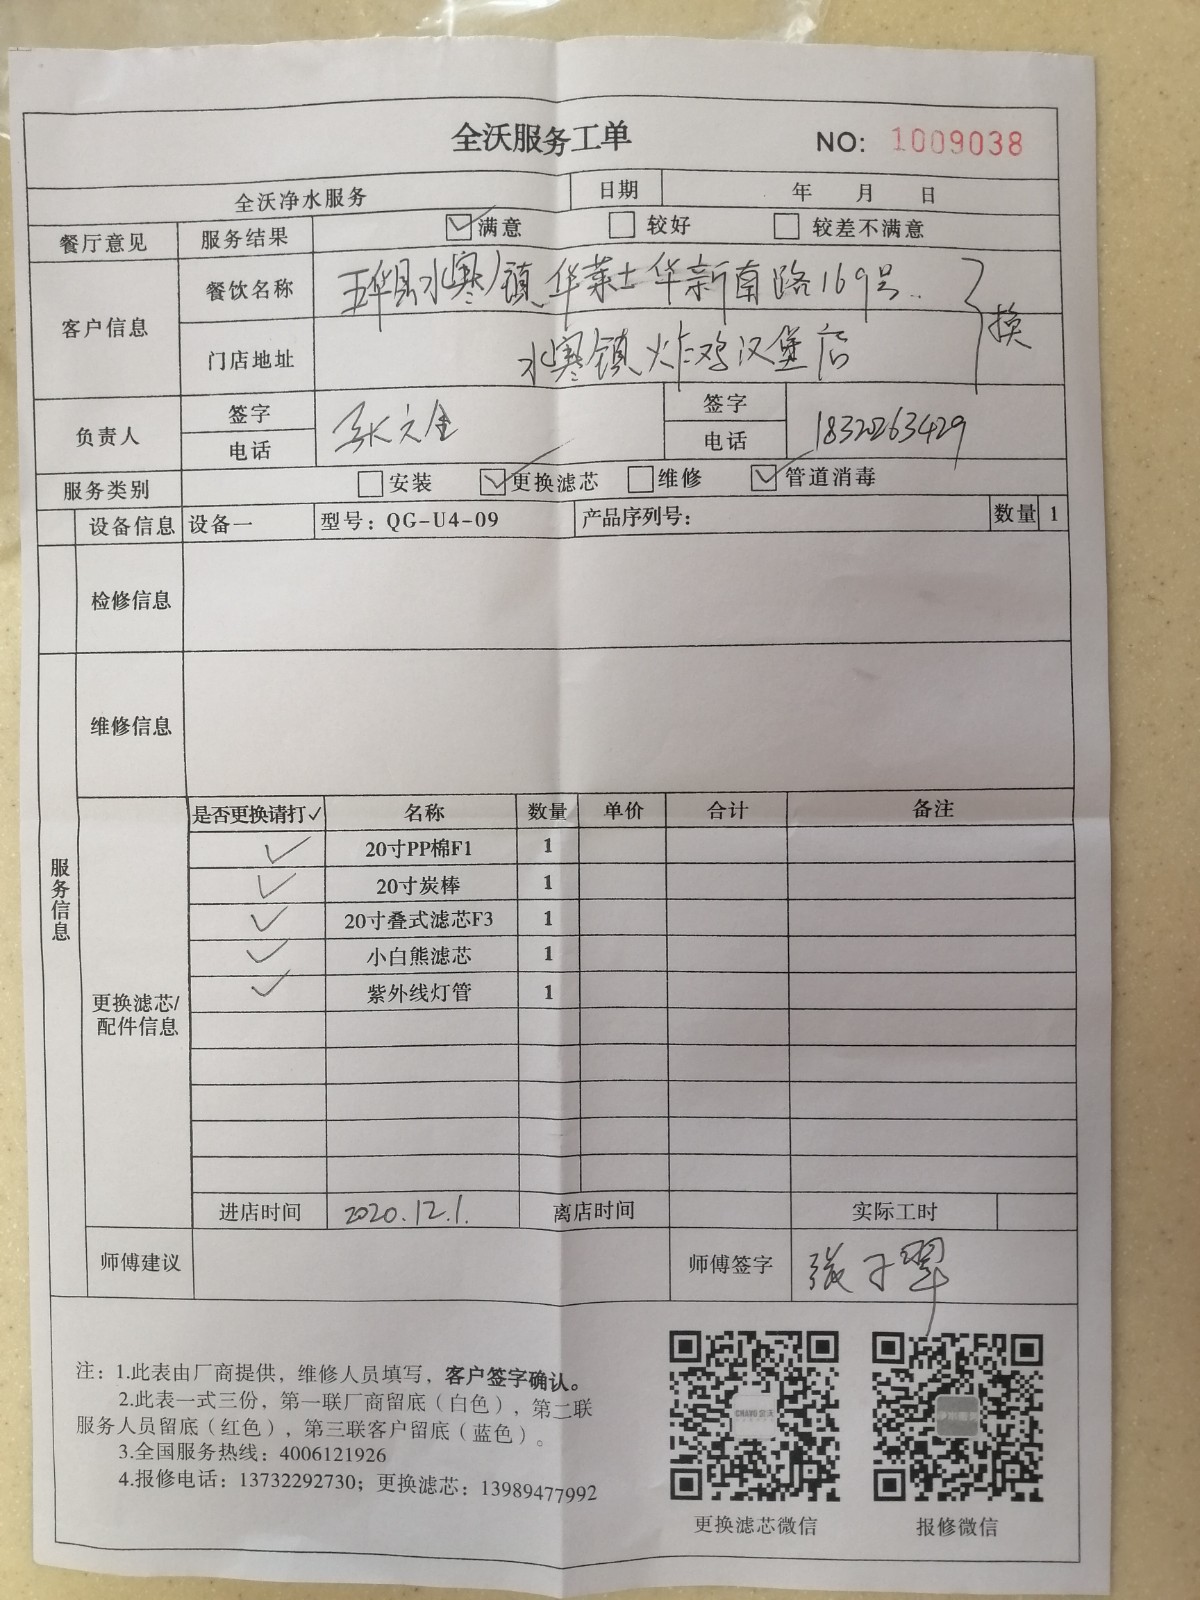 全沃服务工单 NO: 1009038
全沃净水服务 日期 年 月 日
餐厅意见 服务结果 满意 较好 较差不满意
客户信息 餐饮名称 五华县水寨镇华莱士华新南路169号 换
门店地址 水寨镇炸鸡汉堡店
负责人 签字 签字
电话 电话 18320263429
服务类别 安装 更换滤芯 维修 管道消毒
设备信息 设备一 型号：QG-U4-09 产品序列号： 数量 1
检修信息
维修信息
服务信息
是否更换请打✓ 名称 数量 单价 合计 备注
✓ 20寸PP棉F1 1
✓ 20寸炭棒 1
✓ 20寸叠式滤芯F3 1
✓ 小白熊滤芯 1
✓ 紫外线灯管 1
更换滤芯/
配件信息
进店时间 2020.12.1. 离店时间 实际工时
师傅建议 师傅签字
注：1.此表由厂商提供，维修人员填写，客户签字确认。
2.此表一式三份，第一联厂商留底（白色），第二联
服务人员留底（红色），第三联客户留底（蓝色）。
3.全国服务热线：4006121926
4.报修电话：13732292730；更换滤芯：13989477992
更换滤芯微信 报修微信